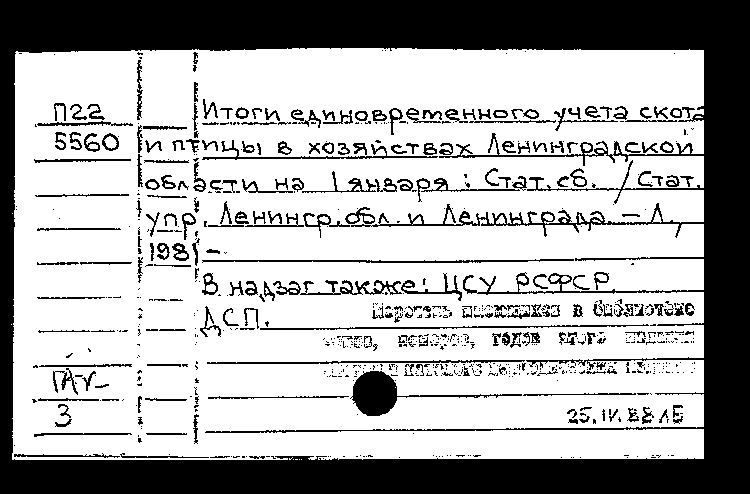 П22 Итоги единовременного учета скота
5560 и птицы в хозяйствах Ленинградской
области на 1 января : Стат. сб. / Стат.
упр. Ленингр. обл. и Ленинграда. – Л.,
198 –
В надзаг также: ЦСУ РСФСР.
ДСП.
Перечень имеющихся в библиотеке
номеров, годов этого издания
25.IV.88 ЛБ
3